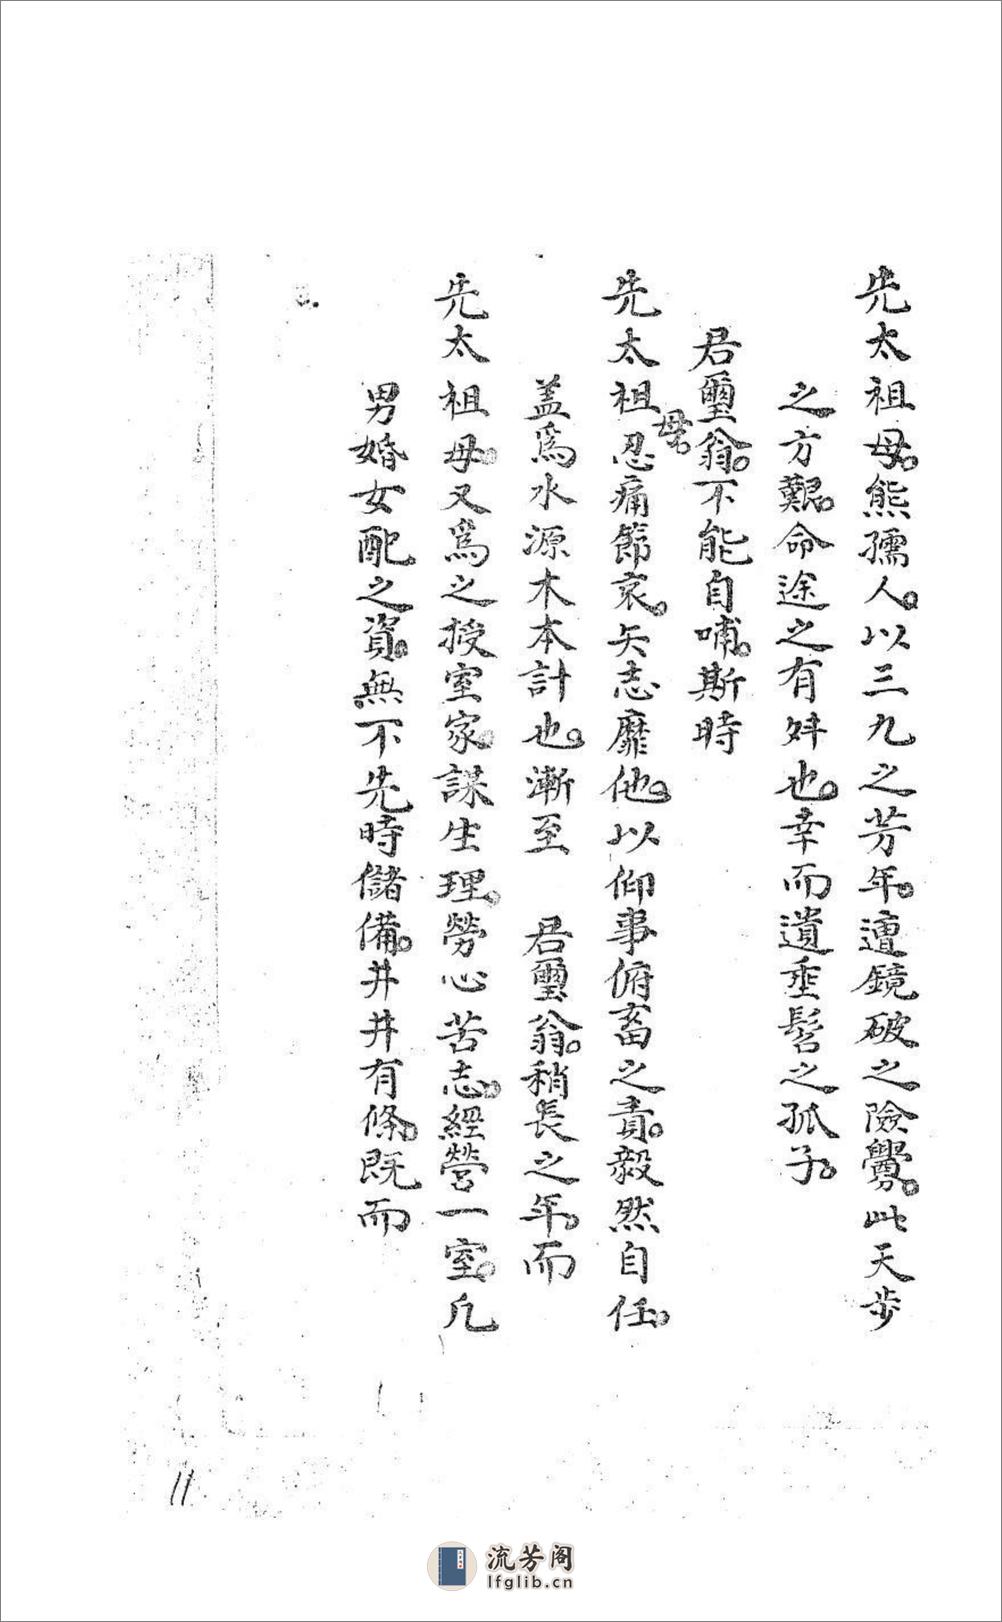 先太祖母。熊孺人。以三九之芳年。遭鏡破之險釁。此天步
之方艱。命途之有舛也。幸而遺垂髫之孤子。
君璽翁。不能自哺。斯時
先太祖母。忍痛節哀。矢志靡他。以仰事俯畜之責。毅然自任。
蓋爲水源木本計也。漸至 君璽翁。稍長之年。而
先太祖母。又爲之授室家。謀生理。勞心苦志。經營一室。凡
男婚女配之資。無不先時儲備。井井有條。既而
11
流芳阁
lfglib.cn